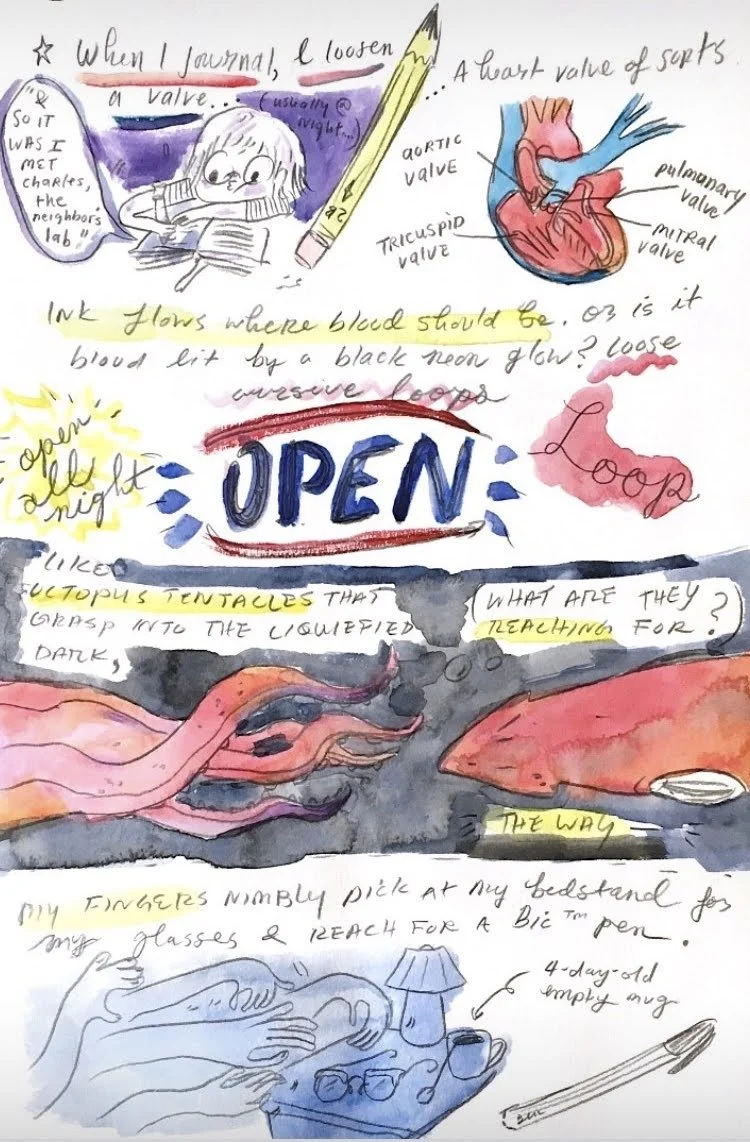 ☆ When I journal, I loosen
a valve...
(usually @
night...)
... A heart valve of sorts
"&
SO IT
WAS I
MET
CHARLES,
THE
neighbor's
lab"
2B
AORTIC
VALVE
PULMONARY
VALVE
TRICUSPID
VALVE
MITRAL
VALVE
INK flows where blood should be. Or is it
blood lit by a black neon glow? loose
cursive loops
open
all
night
OPEN
Loop
LIKE
OCTOPUS TENTACLES THAT
GRASP INTO THE LIQUEFIED
DARK,
WHAT ARE THEY
REACHING FOR?
THE WAY
MY FINGERS NIMBLY PICK AT MY bedstand for
my glasses & REACH FOR A Bic™ pen.
4-day-old
empty mug
BIC